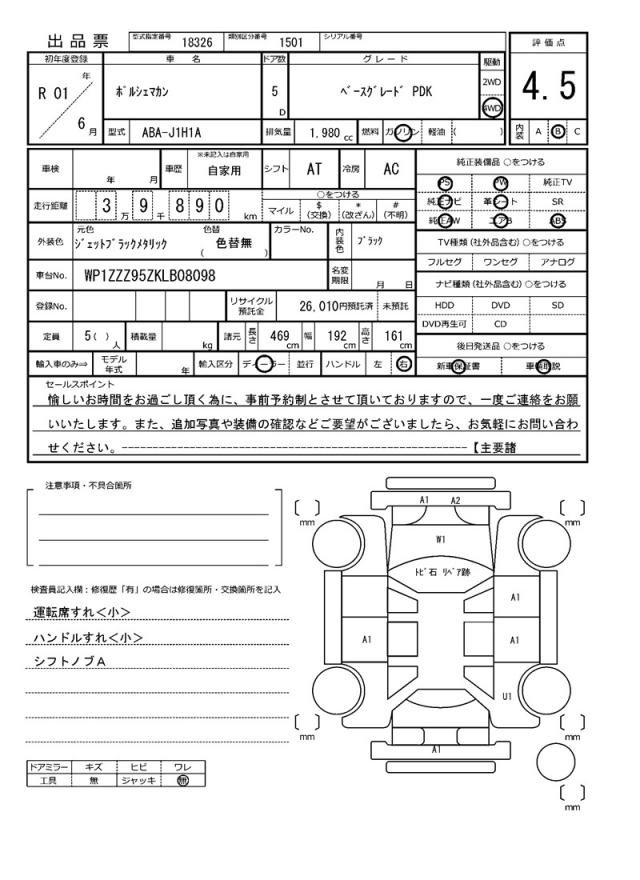 出品票
型式指定番号 18326 類別区分番号 1501 シリアル番号
初年度登録 車名 ドア数 グレード 駆動 評価点
R 01 年 6 月
ﾎﾟﾙｼｪﾏｶﾝ 5 D ﾍﾞｰｽｸﾞﾚｰﾄﾞ PDK 2WD 4WD 4.5
型式 ABA-J1H1A 排気量 1.980 cc 燃料 ガソリン 軽油 ( ) 内装 A B C
車検 年 月 車歴 ※未記入は自家用 自家用 シフト AT 冷房 AC
走行距離 3 万 9 千 8 9 0 km ○をつける マイル $ (交換) * (改ざん) # (不明)
外装色 元色 ｼﾞｪｯﾄﾌﾞﾗｯｸﾒﾀﾘｯｸ 色替 色替無 ( ) カラーNo. 内装色 ﾌﾞﾗｯｸ
車台No. WP1ZZZ95ZKLB08098 名変期限 月 日
登録No. リサイクル預託金 26,010円預託済 未預託
定員 5( ) 人 積載量 kg 諸元 長さ 469 cm 幅 192 cm 高さ 161 cm
輸入車のみ⇒ モデル年式 年 輸入区分 ディーラー 並行 ハンドル 左 右
純正装備品 ○をつける
PS PW 純正TV
純正ナビ 革シート SR
純正AW エアB ABS
TV種類 (社外品含む) ○をつける
フルセグ ワンセグ アナログ
ナビ種類 (社外品含む) ○をつける
HDD DVD SD
DVD再生可 CD
後日発送品 ○をつける
新車保証書 車輌取説
セールスポイント
愉しいお時間をお過ごし頂く為に、事前予約制とさせて頂いておりますので、一度ご連絡をお願
いいたします。また、追加写真や装備の確認などご要望がございましたら、お気軽にお問い合わ
せください。--------------------------------------------------【主要諸
注意事項・不具合箇所
検査員記入欄：修復歴「有」の場合は修復箇所・交換箇所を記入
運転席すれ＜小＞
ハンドルすれ＜小＞
シフトノブＡ
ドアミラー キズ ヒビ ワレ
工具 無 ジャッキ 無
A1 A2
[ ] mm [ ] mm
W1
ﾄﾋﾞ石 ﾘﾍﾟｱ跡
A1
A1 A1
U1
[ ] mm [ ] mm
A1
[ ] mm